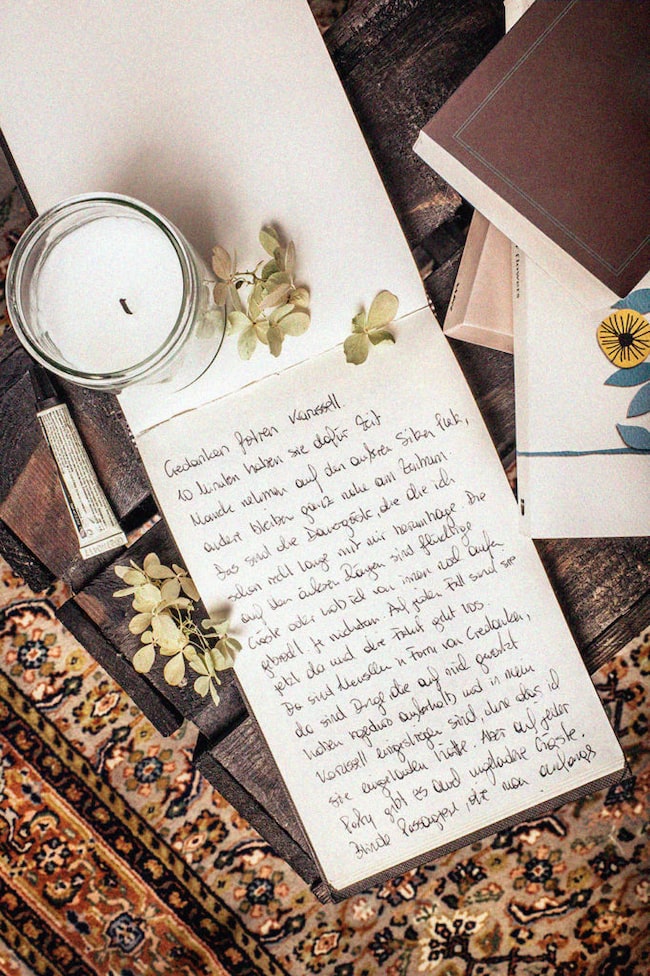 Gedanken fahren Karussell
10 Minuten haben sie dafür Zeit
Manche nehmen auf den äußeren Sitzen Platz,
andere bleiben ganz nahe am Zentrum
Das sind die Dauergäste, die die ich
schon recht lange mit mir herumtrage. Die
auf den äußeren Rängen sind flüchtige
Gäste oder hab ich von innen nach außen
jetzt da und die Fahrt geht los.
Da sind Menschen in Form von Gedanken,
da sind Dinge die auf mich gewartet
haben irgendwo außerhalb und in mein
Karussell eingestiegen sind, ohne dass ich
sie eingeladen hätte. Aber auf jeder
Party gibt es auch ungeladene Gäste.
Blinde Passagiere, die man anfangs
Flowers